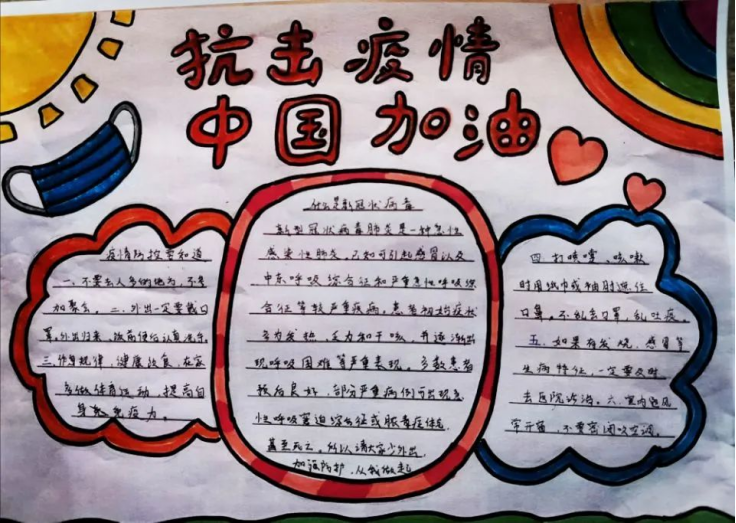 抗击疫情
中国加油
疫情防控要知道
一、不要去人多的地方,不参
加聚会。二、外出一定要戴口
罩,外出归来,饭前便后认真洗手。
三、作息规律,健康饮食,在家
多做体育运动,提高自
身免疫力。
什么是新冠状病毒
新型冠状病毒肺炎是一种急性
感染性肺炎,已知可引起感冒以及
中东呼吸综合征和严重急性呼吸综
合征等较严重疾病。患者初始症状
多为发热、乏力和干咳,并逐渐出
现呼吸困难等严重表现。多数患者
预后良好,部分严重病例可出现急
性呼吸窘迫综合征或脓毒症休克
甚至死亡。所以请大家少外出,
加强防护,从我做起
四、打喷嚏、咳嗽
时用纸巾或袖肘遮住
口鼻。不乱丢口罩,乱吐痰。
五、如果有发烧、感冒等
生病特征,一定要及时
去医院治疗。六、室内通风
常开窗,不要密闭吹空调。